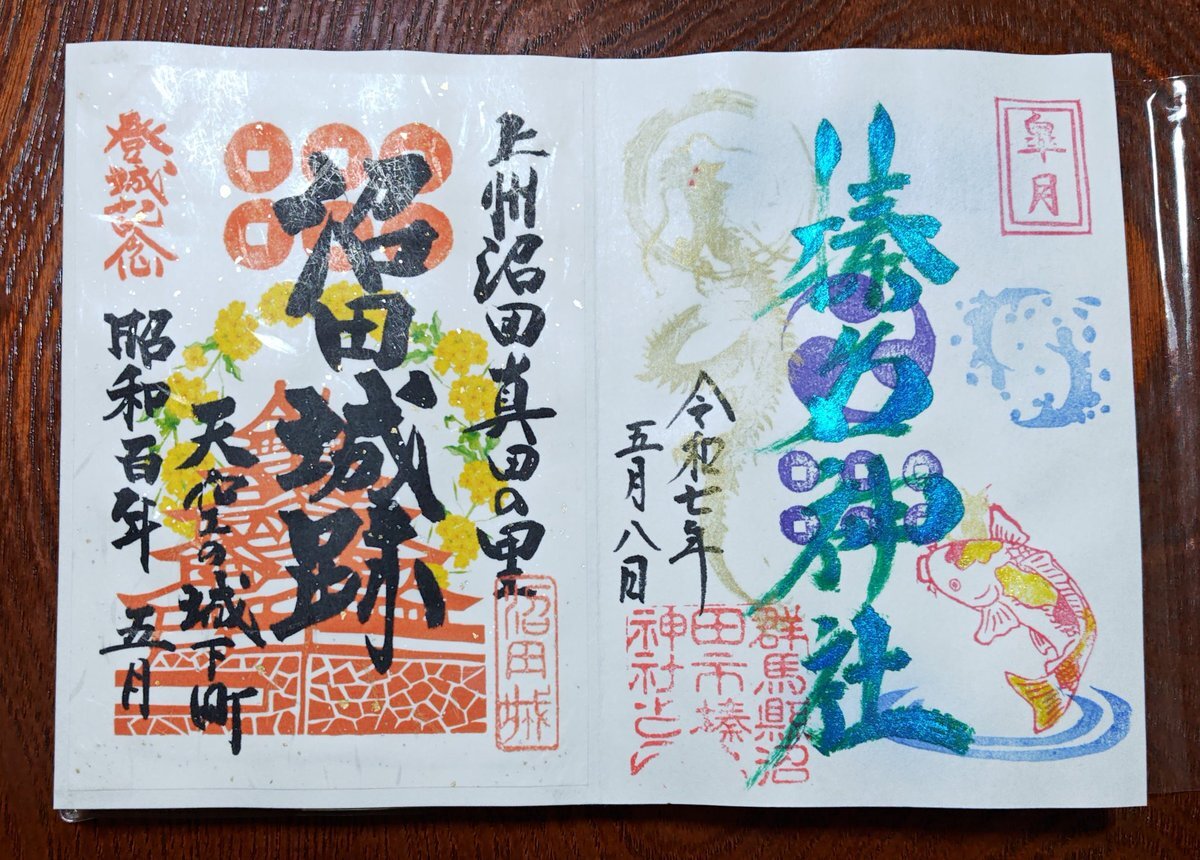 皐月
榛名神社
令和七年
五月八日
群馬縣沼
田市榛
神社之印
上州沼田真田の里
沼田城
沼田城跡
天空の城下町
登城記念
昭和百年 五月